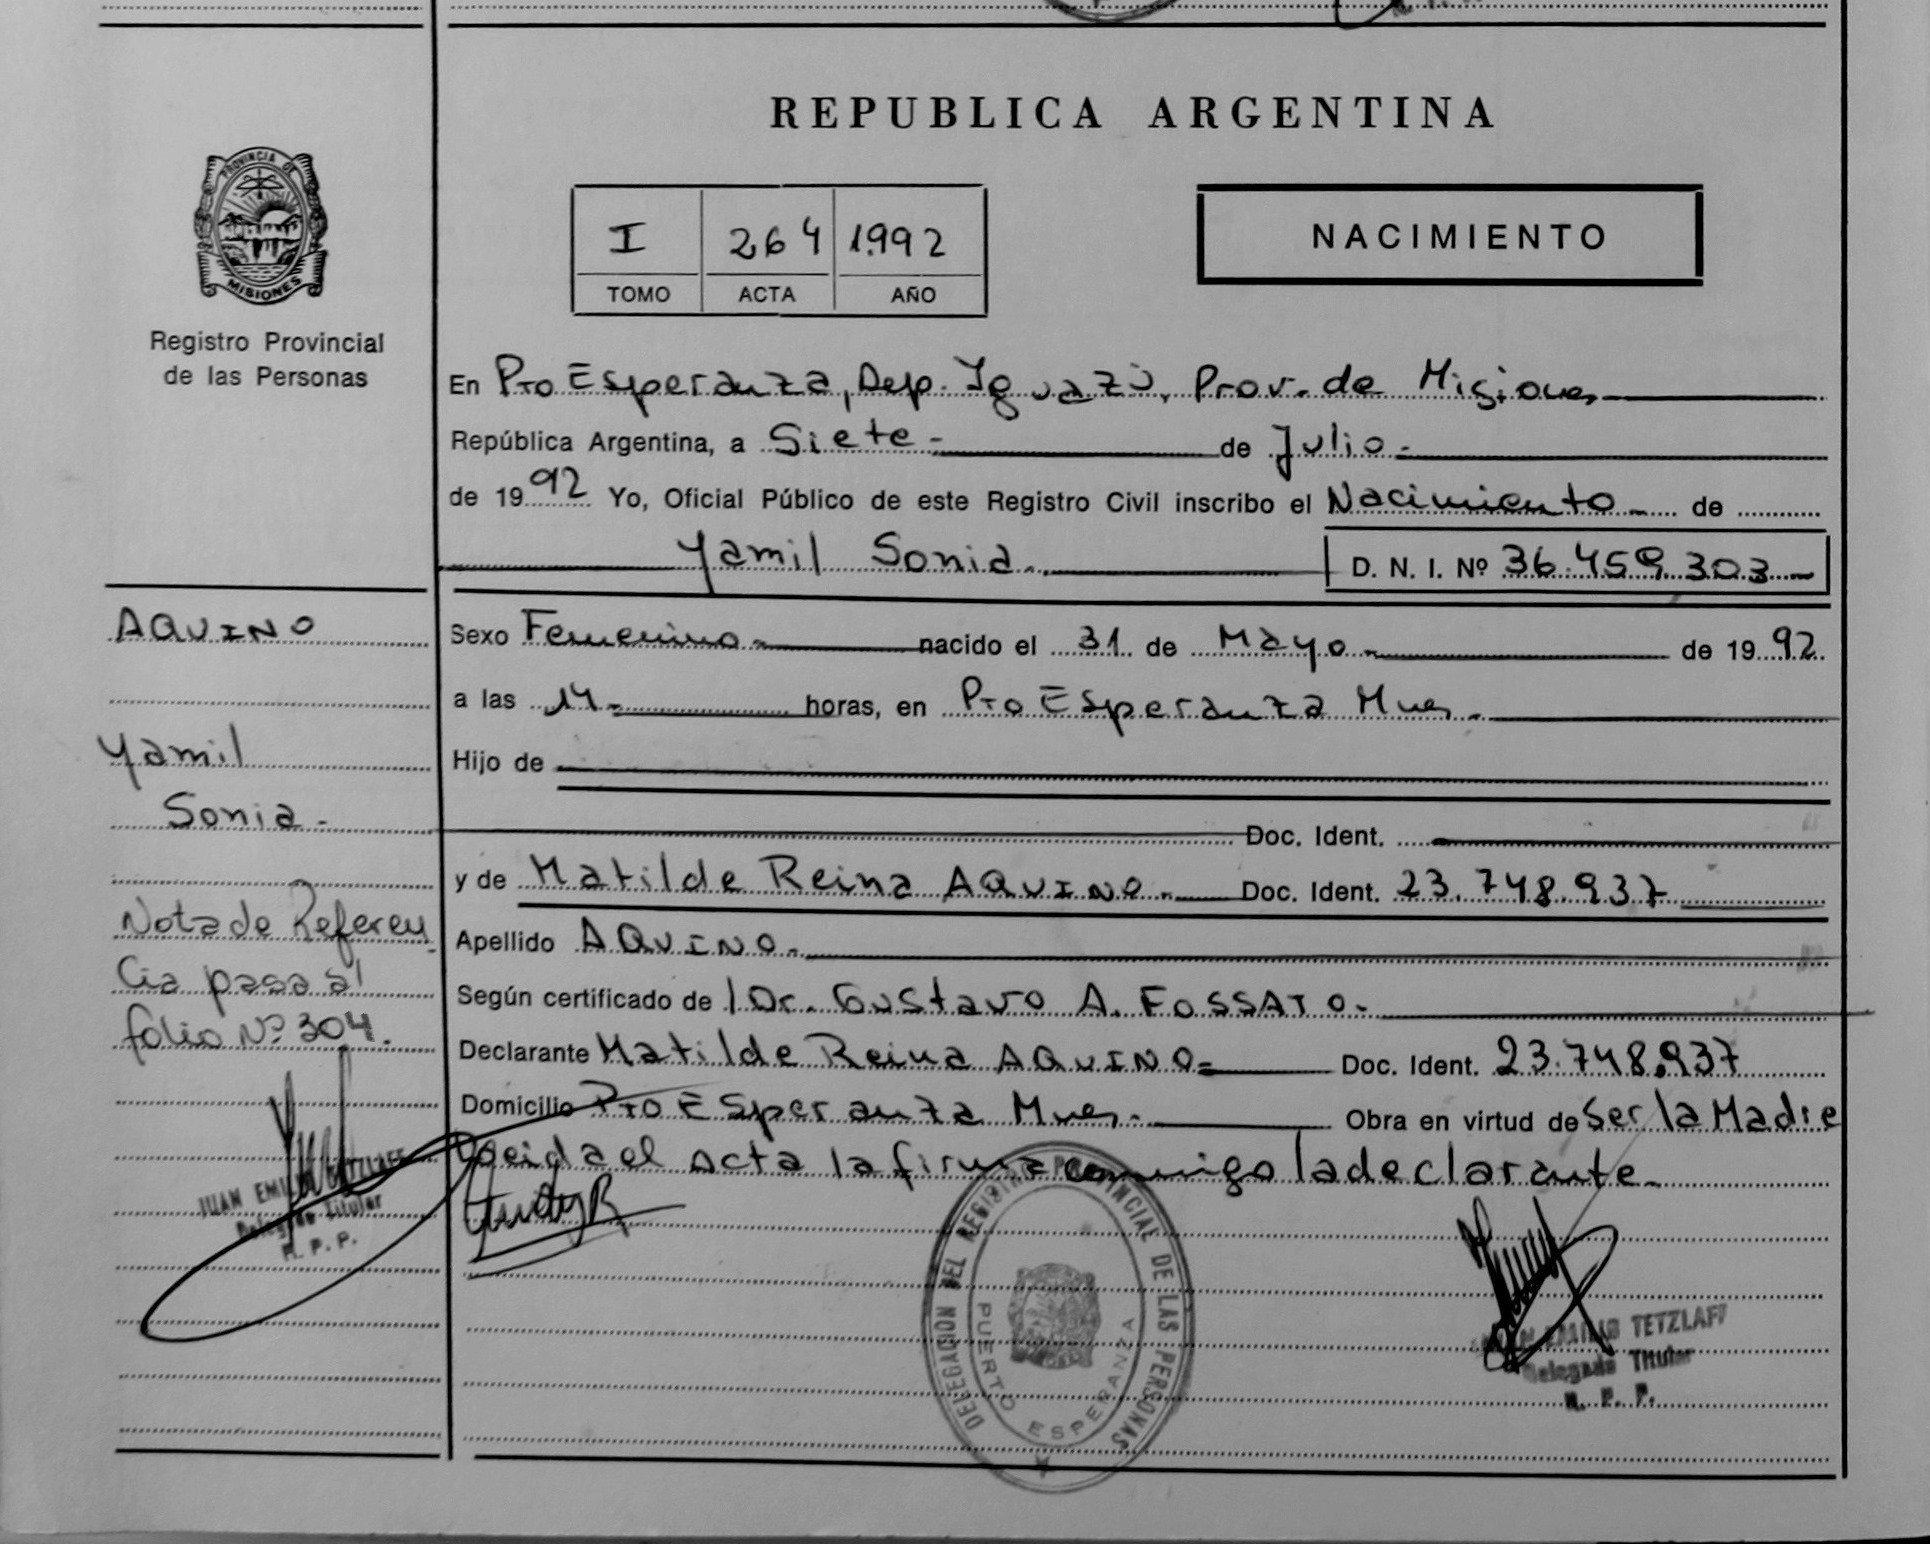 REPUBLICA ARGENTINA
PROVINCIA DE
MISIONES
Registro Provincial
de las Personas
I 264 1992
TOMO ACTA AÑO
NACIMIENTO
En Pto Esperanza, Dep. Iguazú, Prov. de Misiones
República Argentina, a Siete de Julio
de 1992 Yo, Oficial Público de este Registro Civil inscribo el Nacimiento de
Yamil Sonia D. N. I. Nº 36.459.303
Sexo Femenino nacido el 31 de Mayo de 1992
a las 14 horas, en Pto Esperanza Mnes.
Hijo de
Doc. Ident.
y de Matilde Reina AQUINO Doc. Ident. 23.748.937
Apellido AQUINO
Según certificado del Dr. Gustavo A. FOSSATO
Declarante Matilde Reina AQUINO Doc. Ident. 23.748.937
Domicilio Pto Esperanza Mnes. Obra en virtud de Ser la Madre
el Acta la firma conmigo la declarante.
AQUINO
Yamil
Sonia
Nota de Referen
cia pasa al
folio Nº 304.
JUAN EMILIO TETZLAFF
Delegado Titular
R. P. P.
DELEGACIÓN DEL REGISTRO PROVINCIAL DE LAS PERSONAS
PUERTO ESPERANZA
JUAN EMILIO TETZLAFF
Delegado Titular
R. P. P.